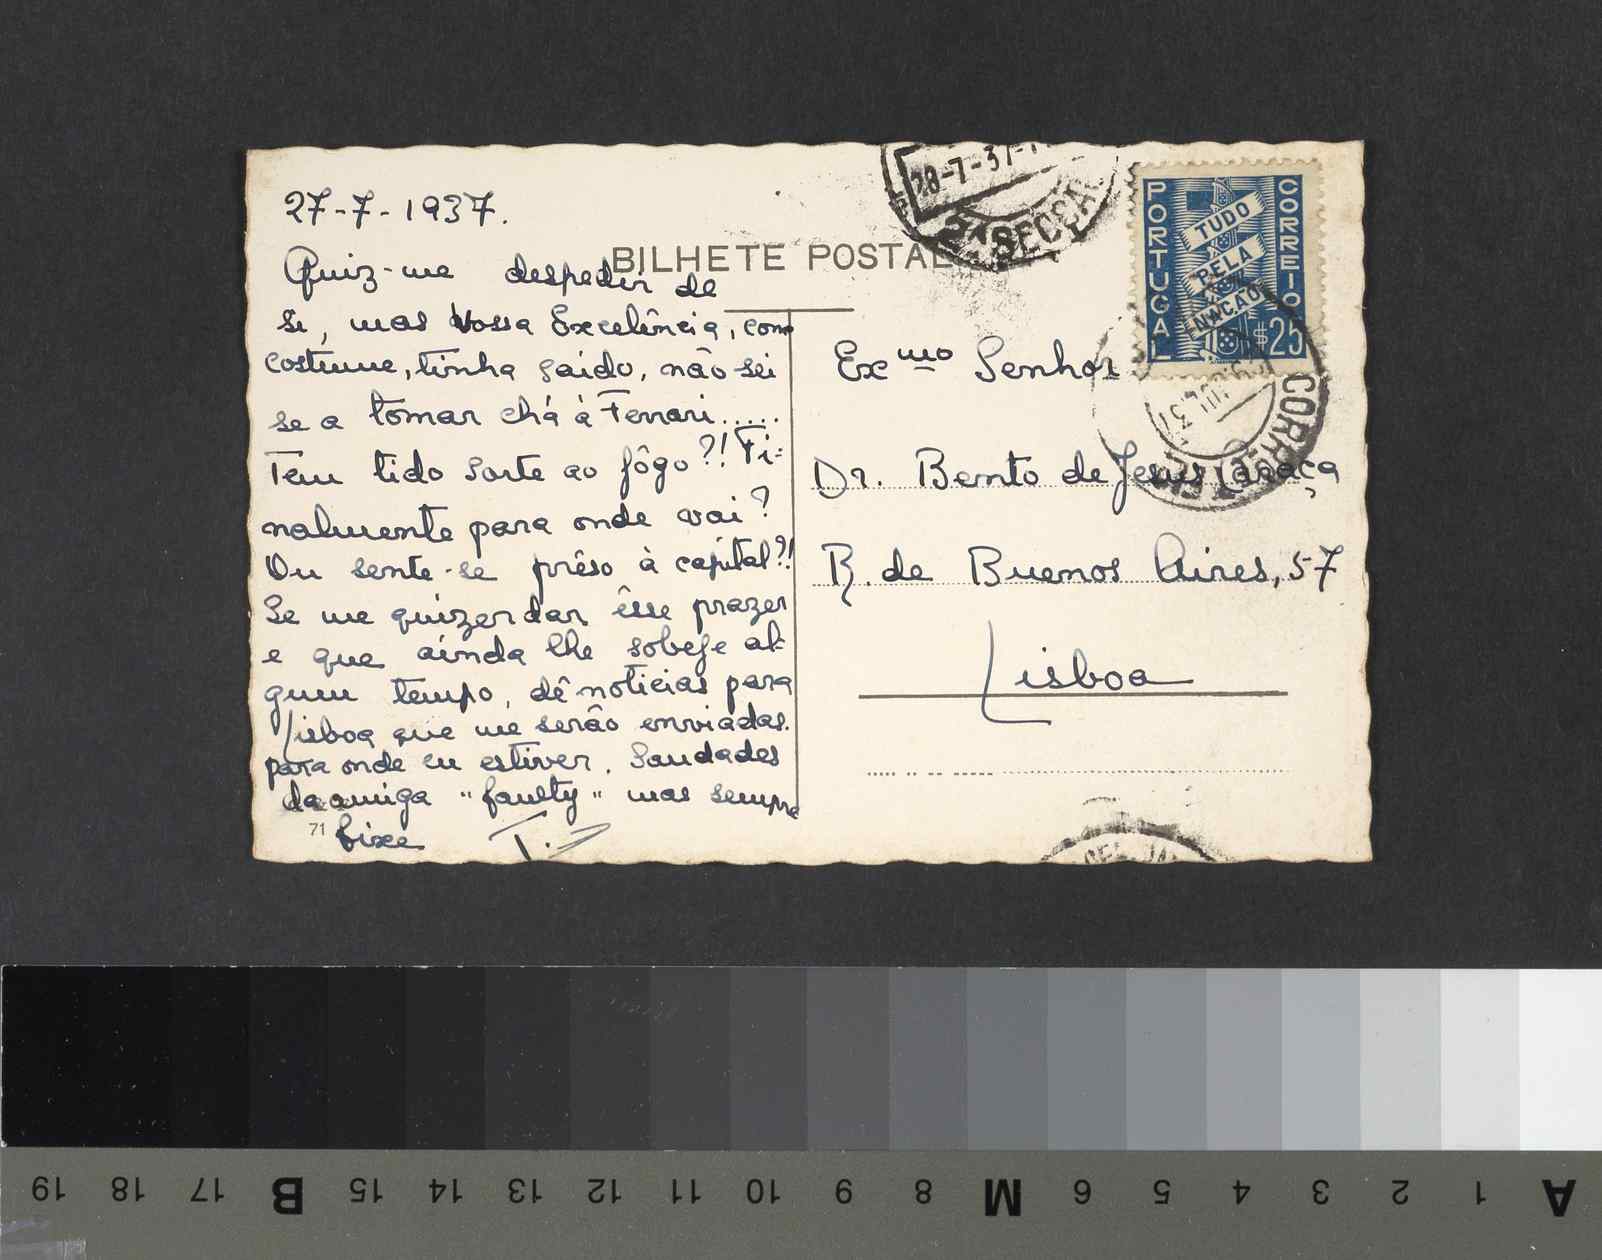 27-7-1937.
Quiz-me despedir de
si, mas Vossa Excelência, como
costume, tinha saído, não sei
se a tomar chá à Ferrari.....
Tem tido sorte ao fôgo?!! Fi-
nalmente para onde vai?
Ou sente-se prêso à capital?!
Se me quizer dar êsse prazer
e que ainda lhe sobeje al-
gum tempo, dê noticias para
Lisboa que me serão enviadas.
para onde eu estiver. Saudades
da amiga "faulty" mas sempre
fixe
71
BILHETE POSTAL
28-7-37
2ª SECÇÃ
PORTUGAL
CORREIO
TUDO
PELA
NAÇÃO
$25
CORR
Exmo Senhor
Dr. Bento de Jesus Caraça
R. de Buenos Aires, 57
Lisboa
19 18 17 B 15 14 13 12 11 10 9 8 M 6 5 4 3 2 1 A